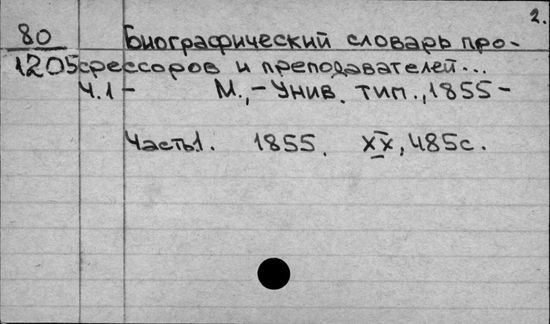 2.
80 Биографический словарь про-
1205 фессоров и преподавателей...
Ч.1 - М., - Унив. тип., 1855 -
Часть 1. 1855. XX, 485с.